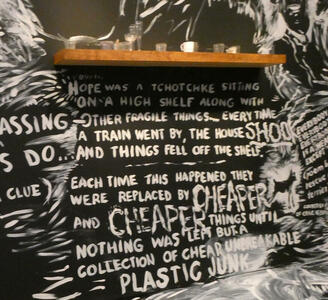 HOPE WAS A TCHOTCHKE SITTING
ON A HIGH SHELF ALONG WITH
OTHER FRAGILE THINGS... EVERY TIME
A TRAIN WENT BY, THE HOUSE SHOOK
AND THINGS FELL OFF THE SHELF.
EACH TIME THIS HAPPENED THEY
WERE REPLACED BY CHEAPER
AND CHEAPER THINGS UNTIL
NOTHING WAS LEFT BUT A
COLLECTION OF CHEAP UNBREAKABLE
PLASTIC JUNK
ASSING
S DO...
CLUE)